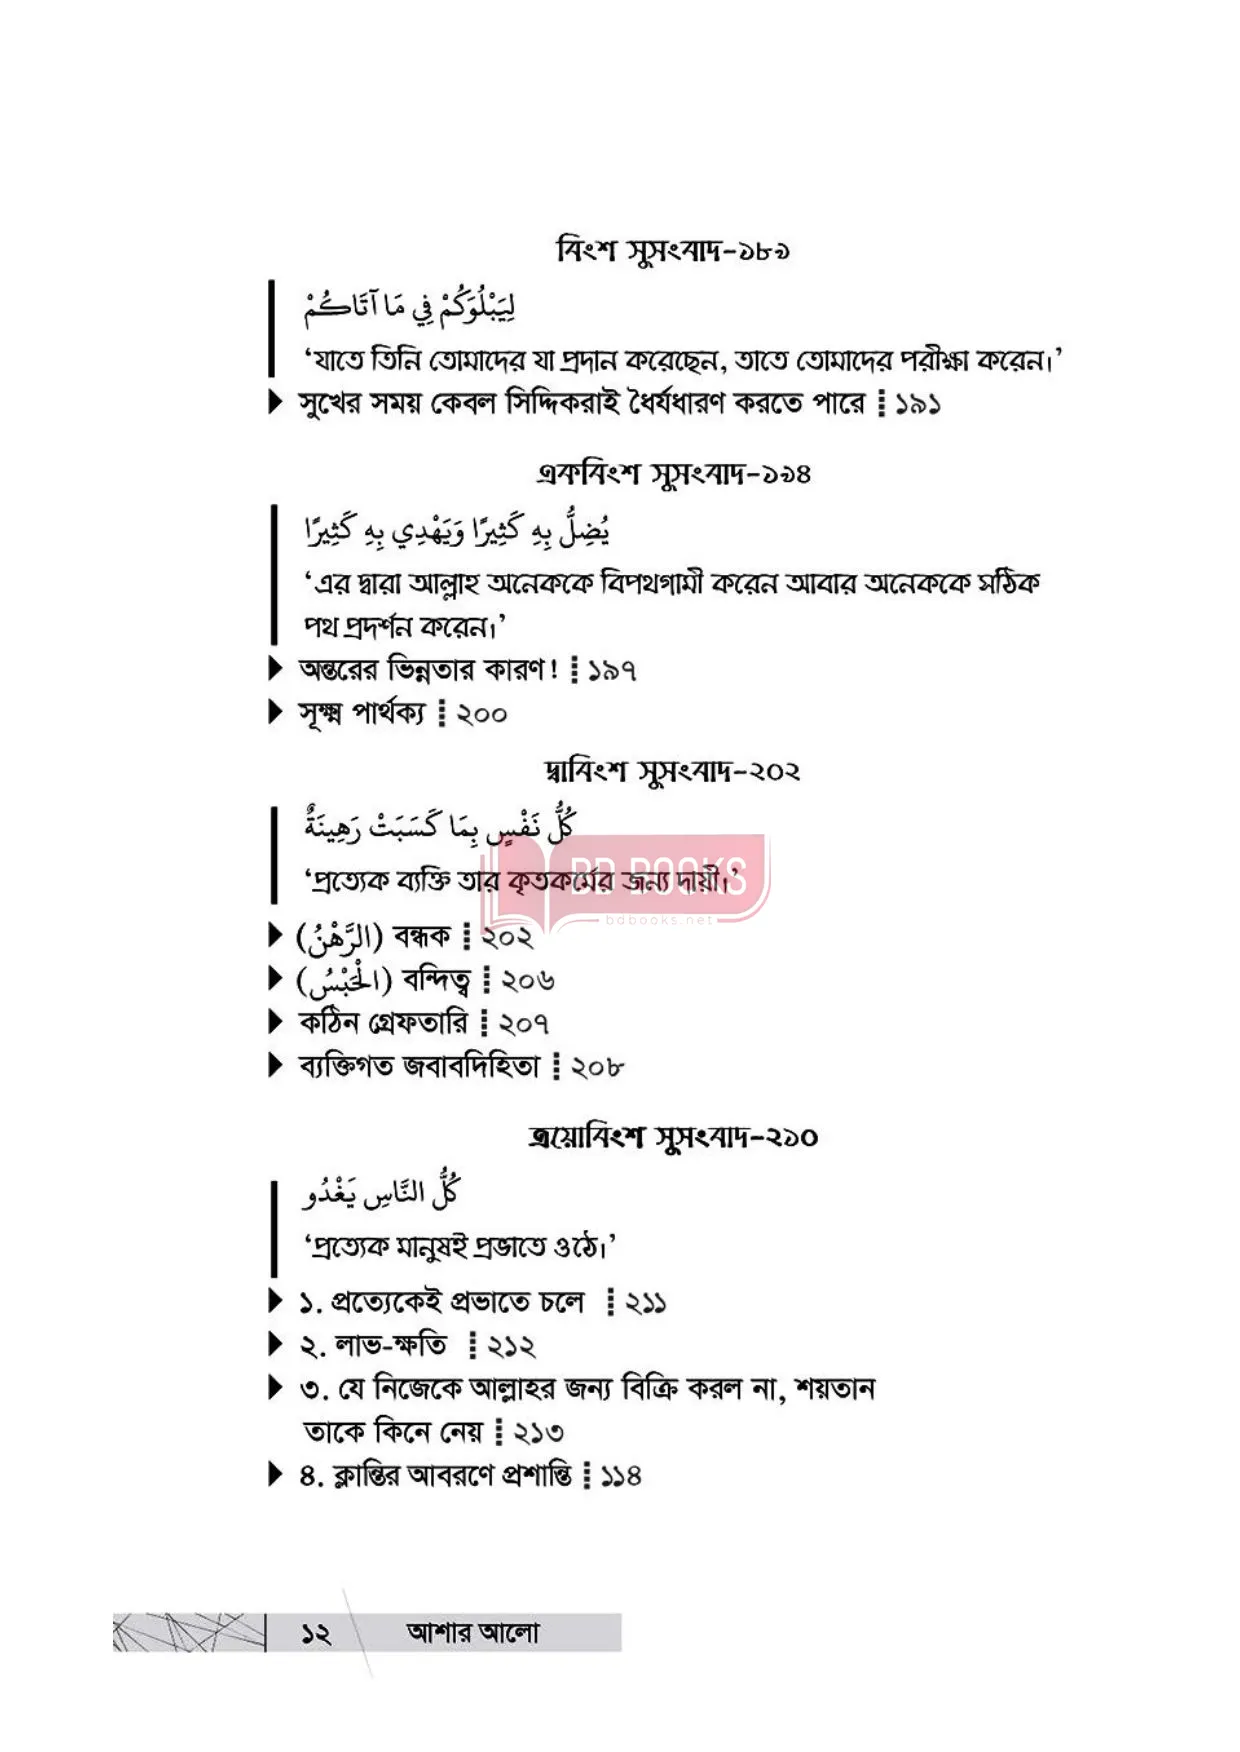 বিংশ সুসংবাদ-১৮৯
لِيَبْلُوَكُمْ فِي مَا آتَاكُمْ
‘যাতে তিনি তোমাদের যা প্রদান করেছেন, তাতে তোমাদের পরীক্ষা করেন।’
সুখের সময় কেবল সিদ্দিকরাই ধৈর্যধারণ করতে পারে ১৯১
একবিংশ সুসংবাদ-১৯৪
يُضِلُّ بِهِ كَثِيرًا وَيَهْدِي بِهِ كَثِيرًا
‘এর দ্বারা আল্লাহ অনেককে বিপথগামী করেন আবার অনেককে সঠিক
পথ প্রদর্শন করেন।’
অন্তরের ভিন্নতার কারণ! ১৯৭
সূক্ষ্ম পার্থক্য ২০০
দ্বাবিংশ সুসংবাদ-২০২
كُلُّ نَفْسٍ بِمَا كَسَبَتْ رَهِينَةٌ
‘প্রত্যেক ব্যক্তি তার কৃতকর্মের জন্য দায়ী।’
BD BOOKS
bdbooks.net
(الرَّهْنُ) বন্ধক ২০২
(الْحَبْسُ) বন্দিত্ব ২০৬
কঠিন গ্রেফতারি ২০৭
ব্যক্তিগত জবাবদিহিতা ২০৮
ত্রয়োবিংশ সুসংবাদ-২১০
كُلُّ النَّاسِ يَغْدُو
‘প্রত্যেক মানুষই প্রভাতে ওঠে।’
১. প্রত্যেকেই প্রভাতে চলে ২১১
২. লাভ-ক্ষতি ২১২
৩. যে নিজেকে আল্লাহর জন্য বিক্রি করল না, শয়তান
তাকে কিনে নেয় ২১৩
৪. ক্লান্তির আবরণে প্রশান্তি ১১৪
১২ আশার আলো